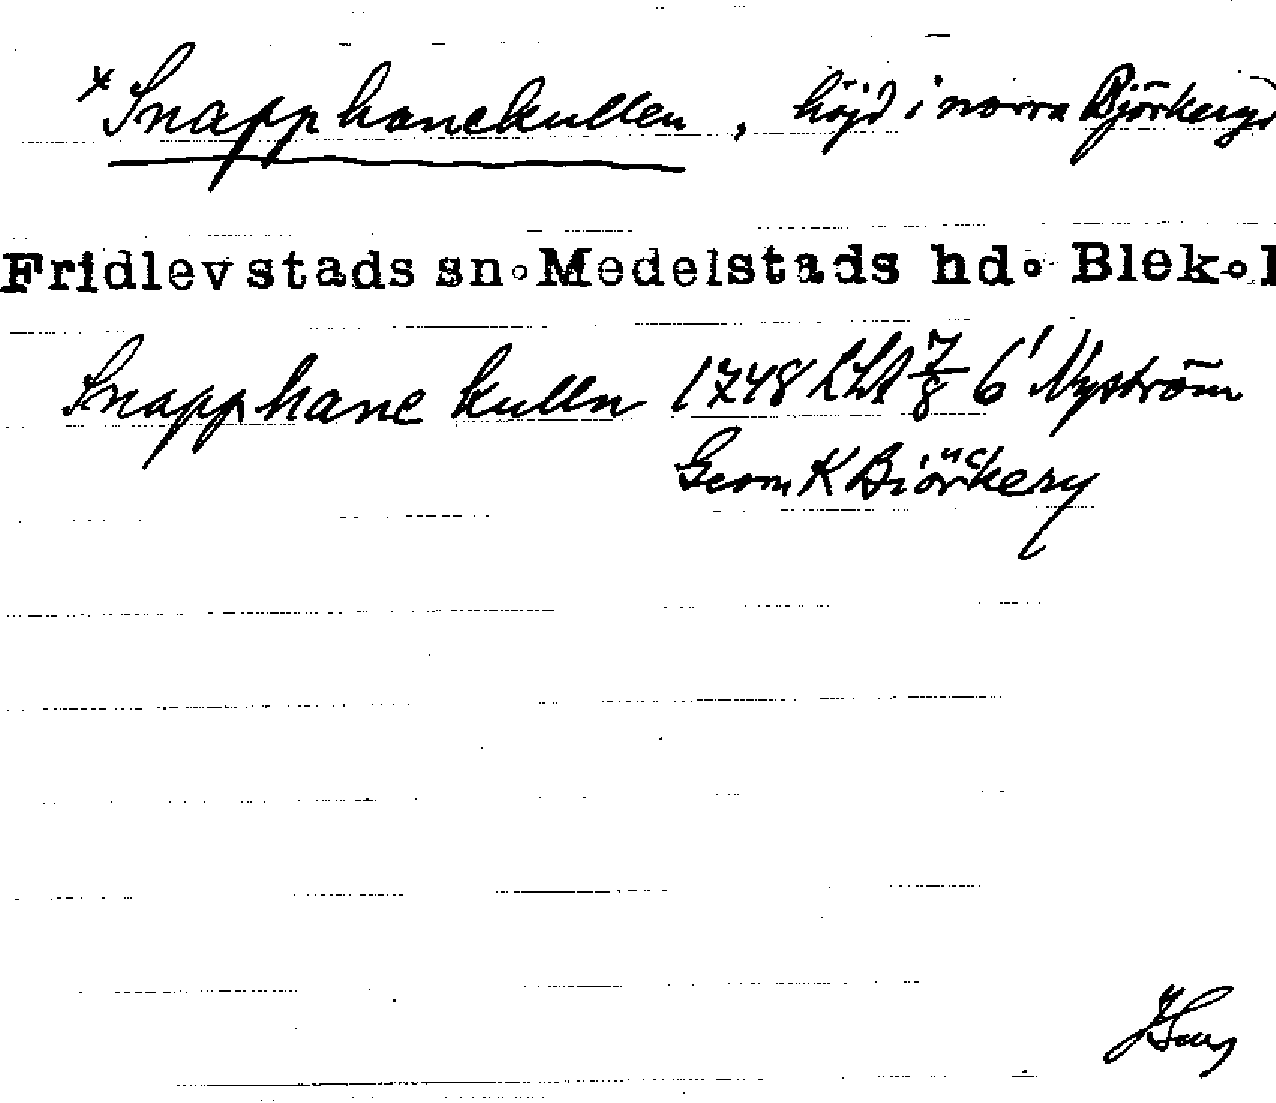 * Snapphanekullen, höjd i norra Björkeryd
Fridlevstads sn. Medelstads hd. Blek. l
Snapphane kulln 1748 LSA 7/8 6¹ Nyström
Geom K Biörkery